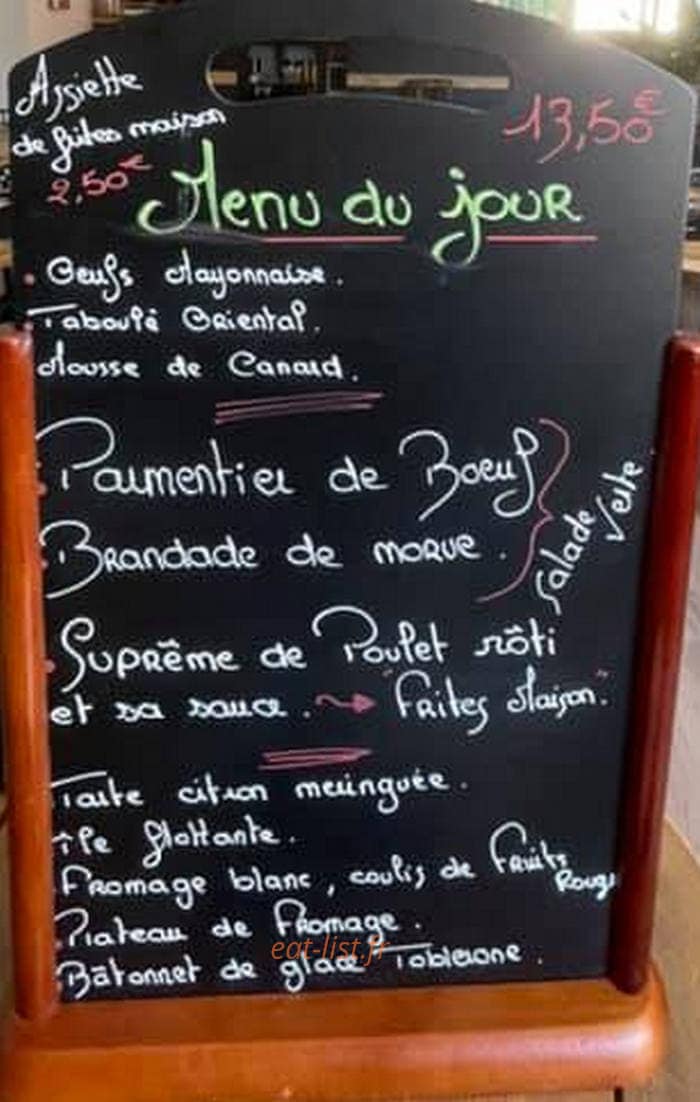 Assiette
de frites maison
2,50€
13,50€
Menu du jour
Oeufs Mayonnaise.
Taboulé Oriental.
Mousse de Canard.
Parmentier de Boeuf
Brandade de morue.
Salade
Verte
Suprême de Poulet rôti
et sa sauce. → "Frites Maison."
Tarte citron meringuée.
île flottante.
Fromage blanc, coulis de Fruits
Rouges
Plateau de Fromage.
Bâtonnet de glace Toblerone.
eat-list.fr